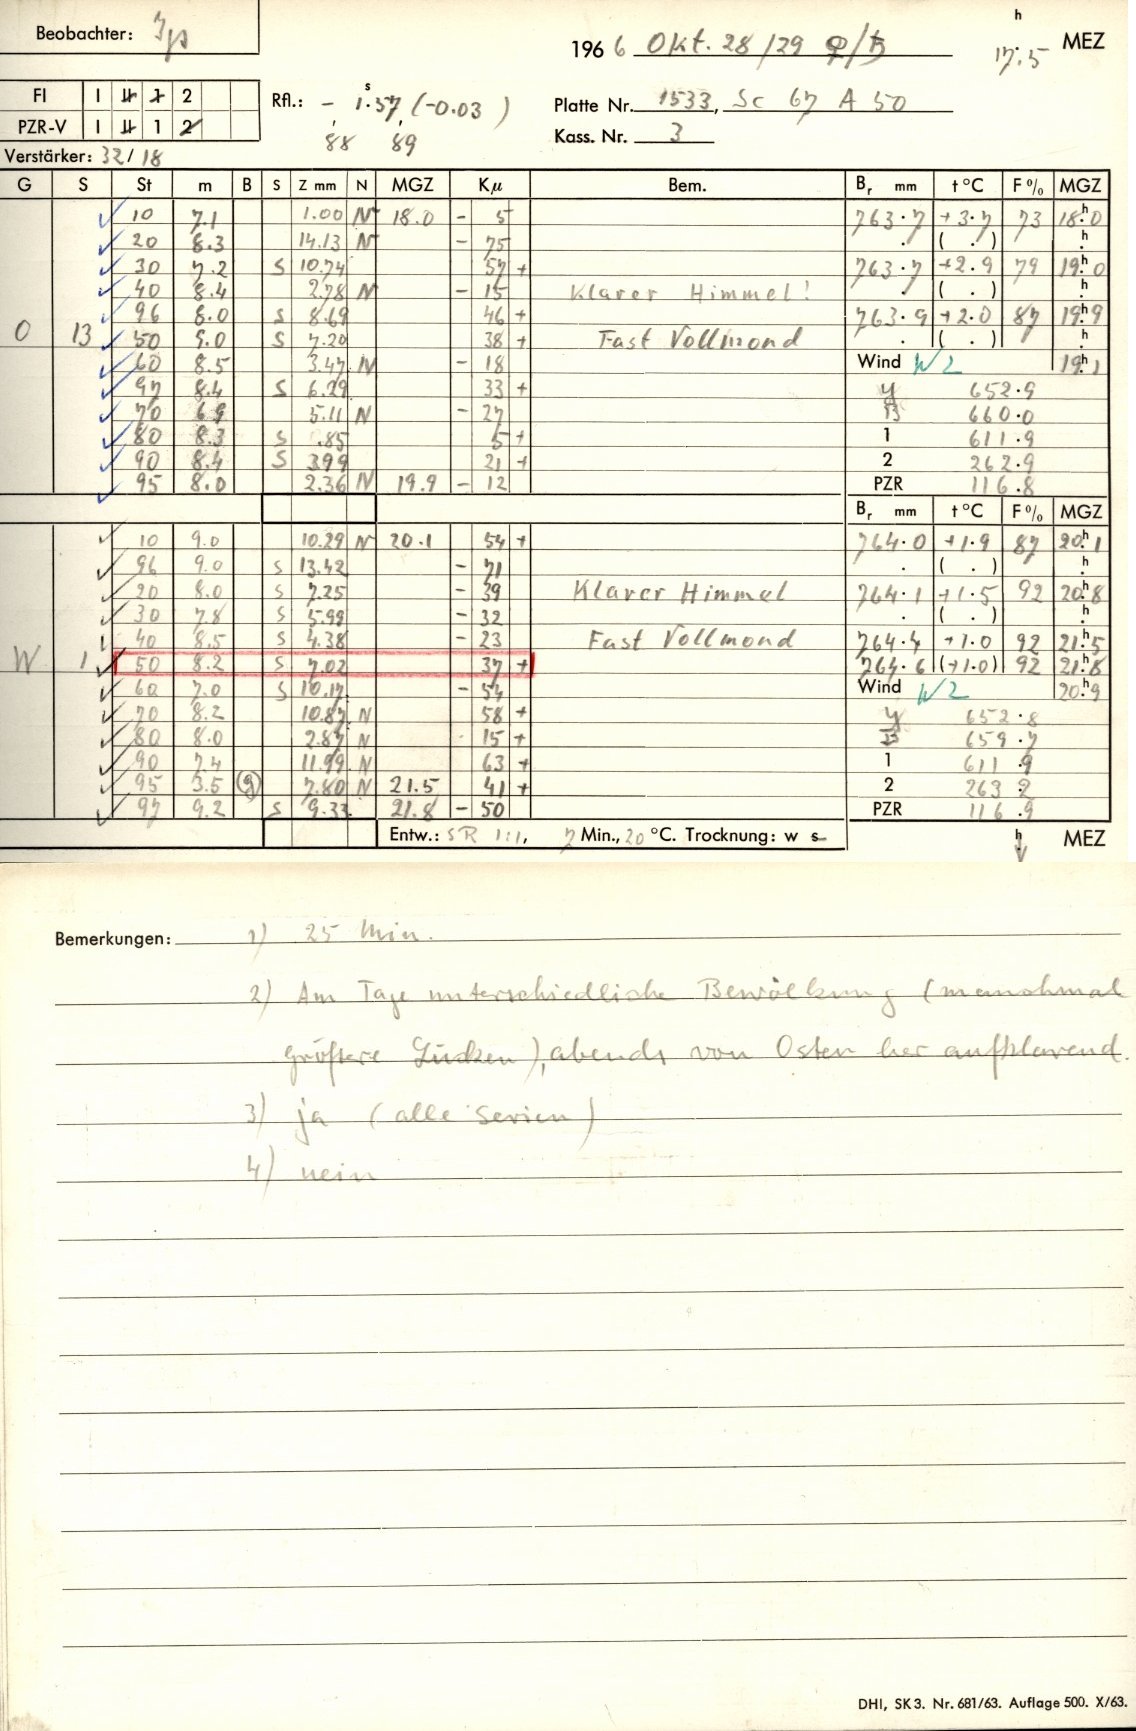 Beobachter:
h
1966 Okt. 28/29 ♀/♄ 17.5 MEZ
FI I II 1 2
PZR-V I II 1 2
Rfl.: - 1.s57 (-0.03)
88 89
Platte Nr. 1533, Sc 67 A 50
Kass. Nr. 3
Verstärker: 32/18
G S St m B S Z mm N MGZ Kμ Bem. Br mm t °C F % MGZ
10 7.1 1.00 N 18.0 - 5 763.7 +3.7 73 18.h0
20 8.3 14.13 N - 75 . ( . ) h.
30 7.2 S 10.74 57 + 763.7 +2.9 79 19.h0
40 8.4 2.78 N - 15 Klarer Himmel! . ( . ) h.
96 8.0 S 8.69 46 + 763.9 +2.0 87 19.h9
O 13 50 9.0 S 7.20 38 + Fast Vollmond . ( . ) h.
60 8.5 3.47 N - 18 Wind W 2 19.h1
97 8.4 S 6.29 33 + y 652.9
70 6.9 5.11 N - 27 B 660.0
80 8.3 S .85 5 + 1 611.9
90 8.4 S 3.99 21 + 2 262.9
95 8.0 2.36 N 19.9 - 12 PZR 116.8
Br mm t °C F % MGZ
10 9.0 10.29 N 20.1 54 + 764.0 +1.9 87 20.h1
96 9.0 S 13.42 - 71 . ( . ) h.
20 8.0 S 7.25 - 39 Klarer Himmel 764.1 +1.5 92 20.h8
30 7.8 S 5.99 - 32 . ( . ) h.
40 8.5 S 4.38 - 23 Fast Vollmond 764.4 +1.0 92 21.h5
W 1 50 8.2 S 7.02 37 + 764.6 (+1.0) 92 21.h8
60 7.0 S 10.17 - 54 Wind W 2 20.h9
70 8.2 10.87 N 58 + y 652.8
80 8.0 2.87 N 15 + B 659.7
90 7.4 11.99 N 63 + 1 611.9
95 3.5 (g) 7.80 N 21.5 41 + 2 263.2
97 9.2 S 9.33 21.8 - 50 PZR 116.9
Entw.: SR 1:1, 7 Min., 20 °C. Trocknung: w s h MEZ
Bemerkungen: 1) 25 Min.
2) Am Tage unterschiedliche Bewölkung (manchmal
größere Lücken), abends von Osten her aufklarend.
3) ja (alle Serien)
4) nein
DHI, SK 3. Nr. 681/63. Auflage 500. X/63.